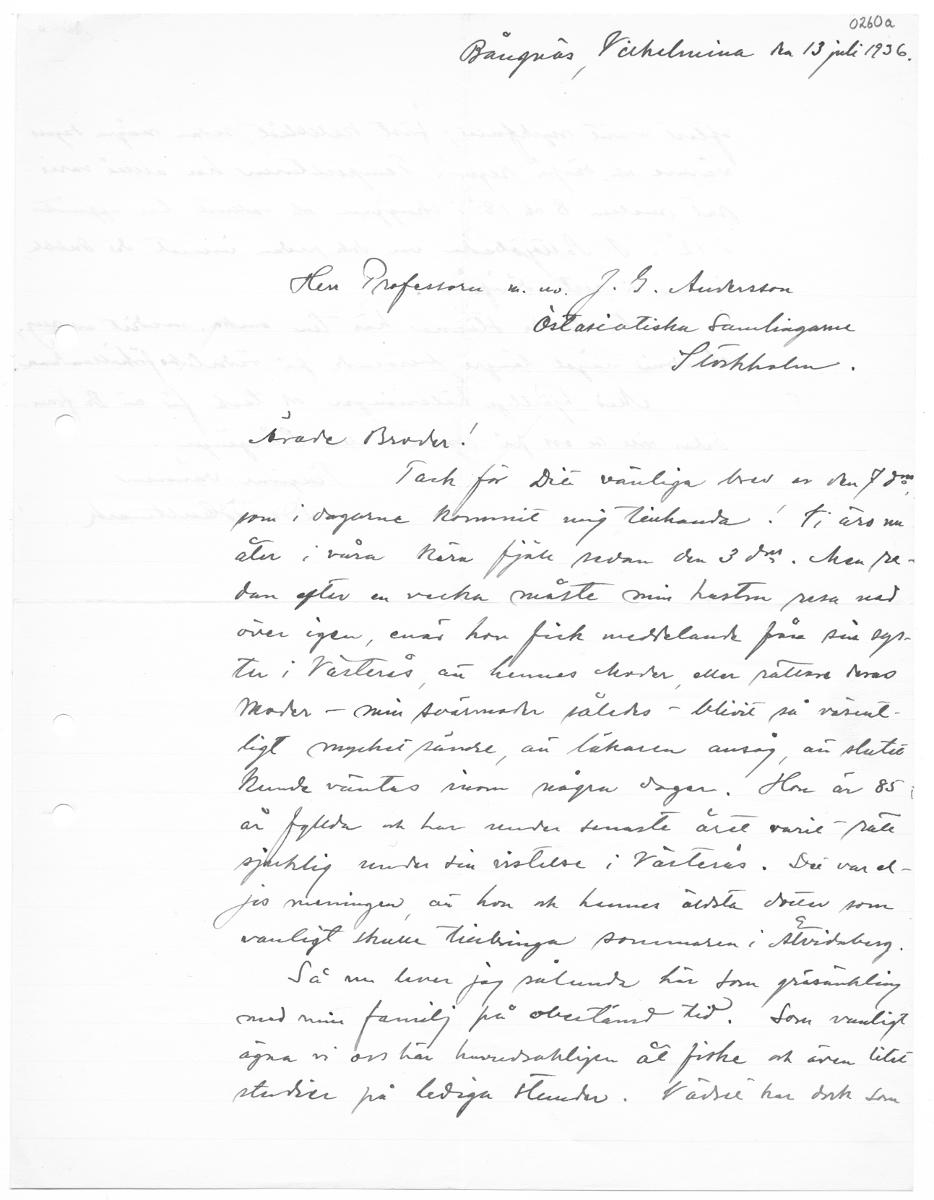 0260a
Bångnäs, Vilhelmina den 13 juli 1936.
Herr Professorn m. m. J. G. Andersson
Östasiatiska Samlingarne
Stockholm.
Ärade Broder!
Tack för Ditt vänliga brev av den 7 dns,
som i dagarne kommit mig tillhanda! Vi äro nu
åter i våra kära fjäll sedan den 3 dns. Men re-
dan efter en vecka måste min hustru resa ned
över igen, enär hon fick meddelande från sin sys-
ter i Västerås, att hennes Moder, eller rättare deras
Moder – min svärmoder således – blivit så väsent-
ligt mycket sämre, att läkaren ansåg, att slutet
kunde väntas inom några dagar. Hon är 85
år fyllda och har under senaste året varit rätt
sjuklig under sin vistelse i Västerås. Det var el-
jes meningen, att hon och hennes äldsta dotter som
vanligt skulle tillbringa sommaren i Åtvidaberg.
Så nu lever jag sålunda här som gräsänkling
med min familj på obestämd tid. Som vanligt
ägna vi oss här huvudsakligen åt fiske och även litet
studier på lediga stunder. Vädret har dock som